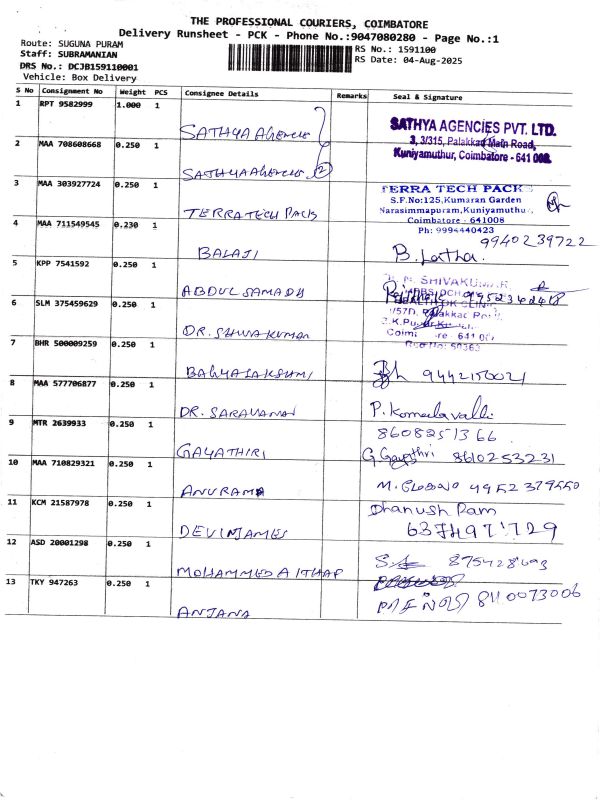 THE PROFESSIONAL COURIERS, COIMBATORE
Delivery Runsheet - PCK - Phone No.:9047080280 - Page No.:1
Route: SUGUNA PURAM
RS No.: 1591100
Staff: SUBRAMANIAN
RS Date: 04-Aug-2025
DRS No.: DCJB159110001
Vehicle: Box Delivery
S No Consignment No Weight PCS Consignee Details Remarks Seal & Signature
1 RPT 9582999 1.000 1 SATHYA AGENCIE
SATHYA AGENCIES PVT. LTD.
3, 3/315, Palakkad Main Road,
Kuniyamuthur, Coimbatore - 641 008.
2 MAA 708608668 0.250 1 SATHYA AGENCIES (2)
3 MAA 303927724 0.250 1 TERRA TECH PACK
TERRA TECH PACKS
S.F.No:125, Kumaran Garden
Narasimmapuram, Kuniyamuthur,
Coimbatore - 641008
Ph: 9994440423
4 MAA 711549545 0.230 1 BALAJI
9940239722
B. Latha
5 KPP 7541592 0.250 1 ABDUL SAMADH
6 SLM 375459629 0.250 1 DR. SHIVA KUMAR
SHIVAKUMAR
7 BHR 500009259 0.250 1 BAGYALAKSHMI
9442150021
8 MAA 577706877 1 DR. SARAVANAN
P. Komalavalli
8608251366
9 MTR 2639933 0.250 1 GAYATHIRI
G. Gayathri 8610253231
10 MAA 710829321 0.250 1 ANURAMA
11 KCM 21587978 0.250 1 DEVIN JAMES
Dhanush Ram
12 ASD 20001298 0.250 1 MOHAMMED AITHAF
13 TKY 947263 0.250 1 ANJANA
8110073006